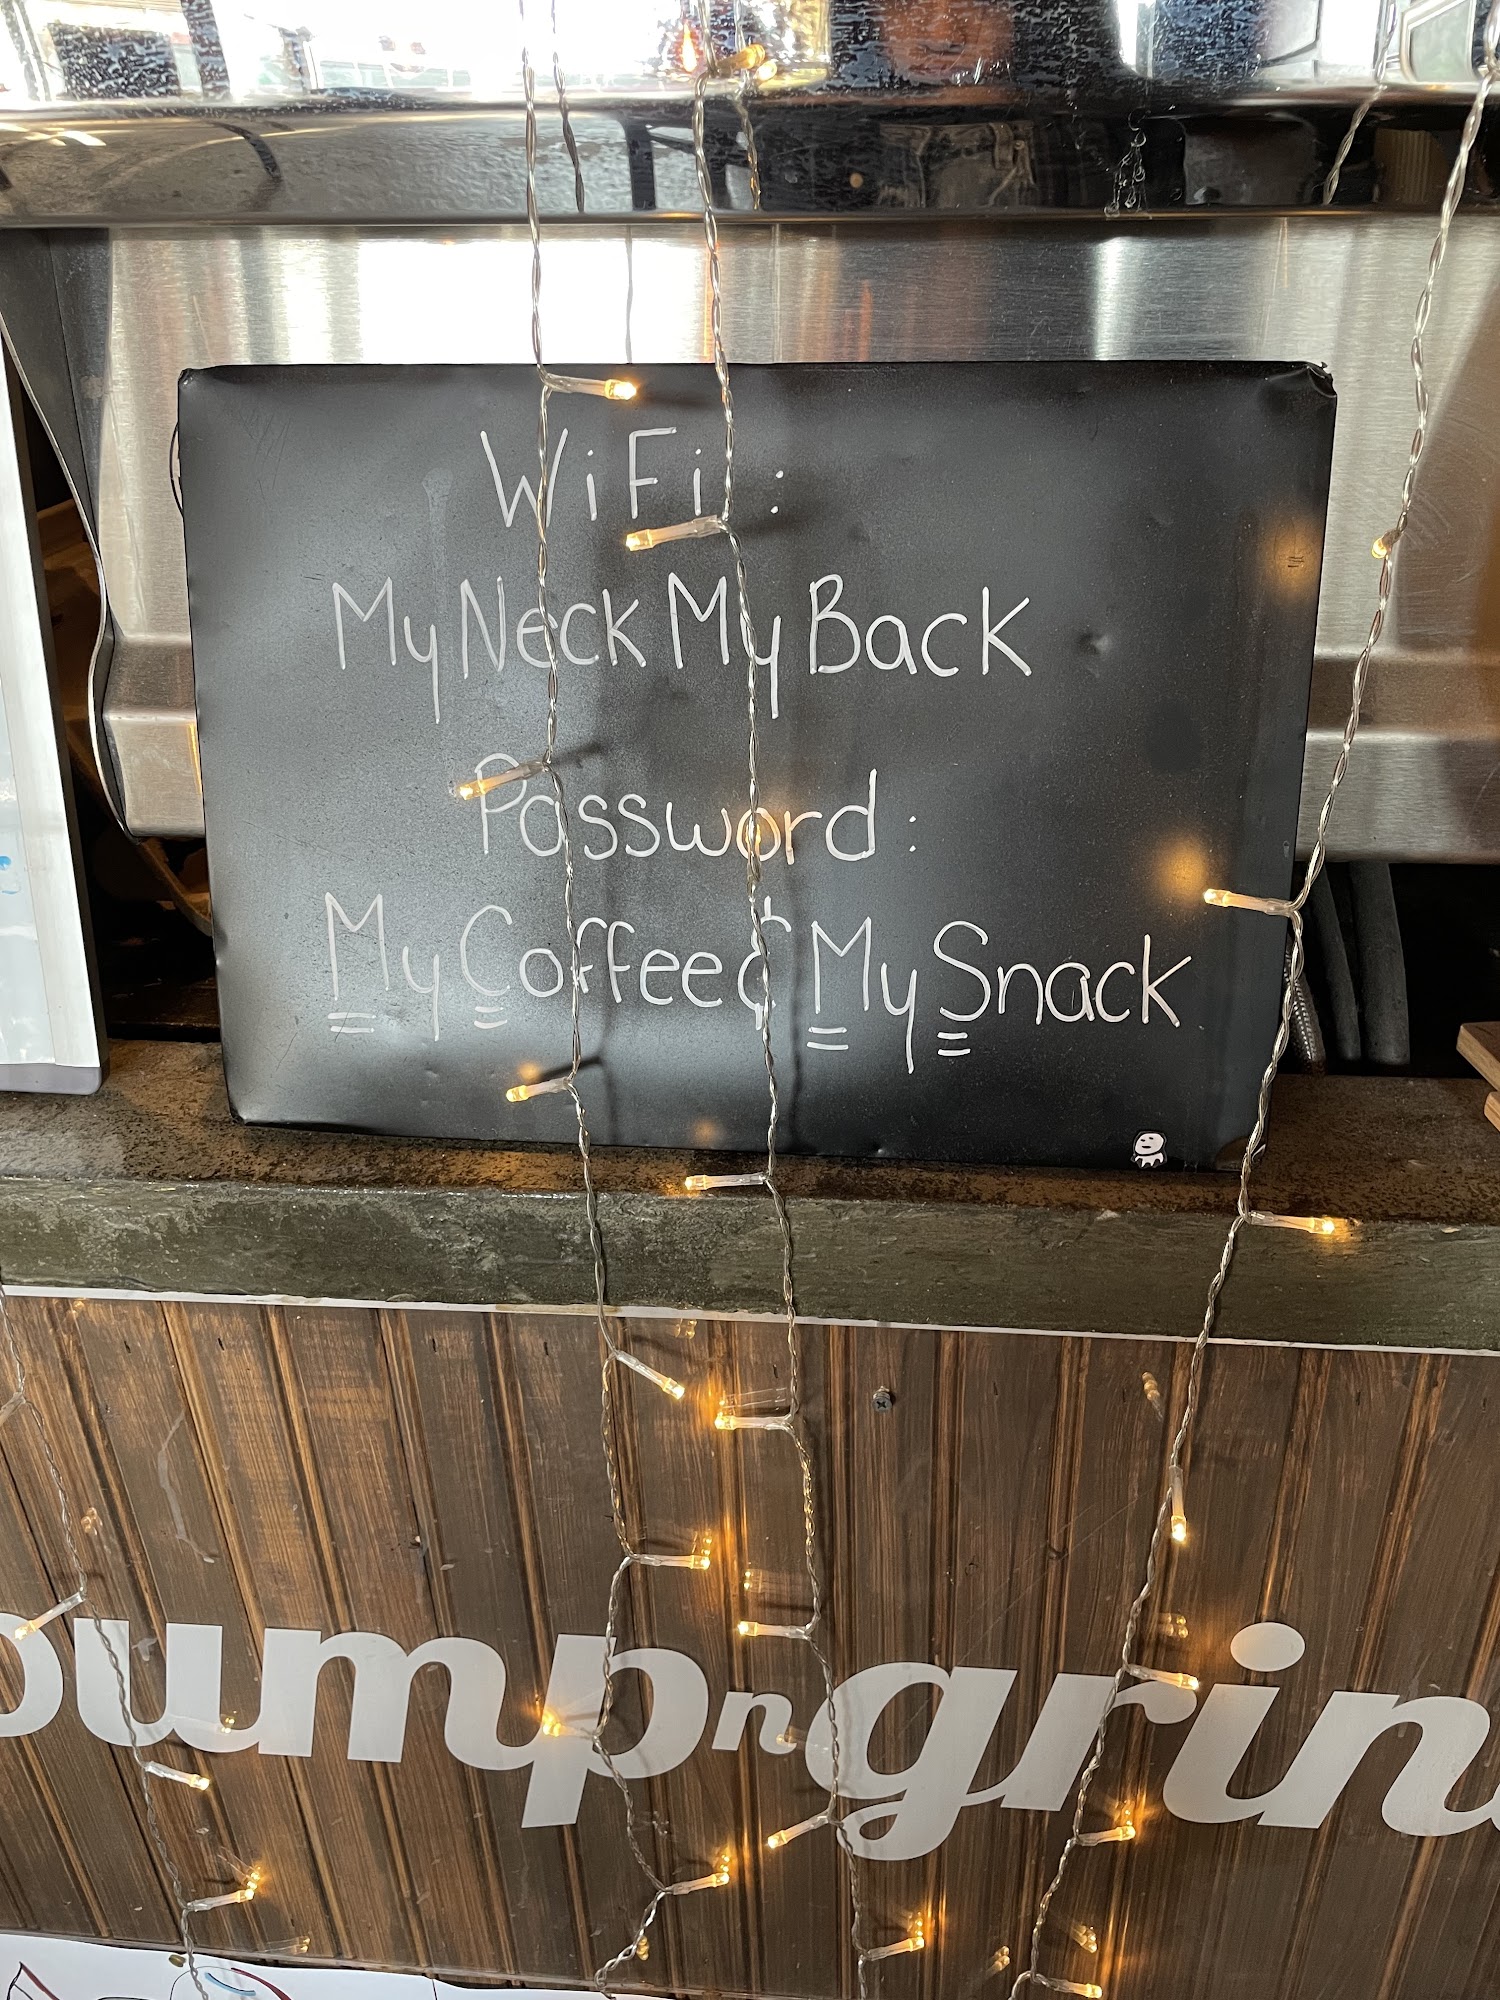 WiFi :
MyNeckMyBack
Password :
MyCoffee&MySnack
bump n grin